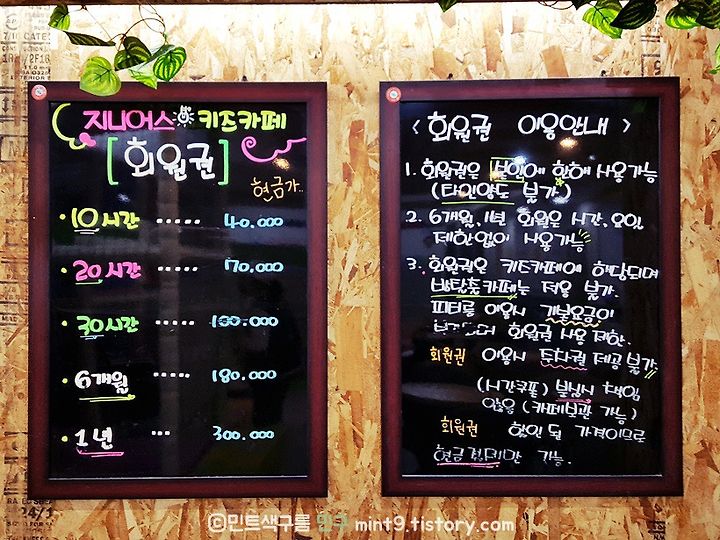 지니어스 키즈카페
[회원권]
현금가..
• 10시간 ..... 40.000
• 20시간 ..... 70.000
• 30시간 ..... 100.000
• 6개월 ..... 180.000
• 1년 ... 300.000
< 회원권 이용안내 >
1. 회원권은 본인에 한해 사용가능
(타인양도 불가)
2. 6개월, 1년 회원은 시간, 요일
제한없이 사용가능
3. 회원권은 키즈카페에 해당되며
방탈출카페는 적용 불가.
파티룸 이용시 기본요금이
회원권 사용 제한.
회원권 이용시 주차권 제공 불가.
(시간쿠폰) 분실시 책임
않음 (카페보관 가능)
회원권 할인 된 가격이므로
현금결제만 가능.
ⓒ민트색구름 민구 mint9.tistory.com